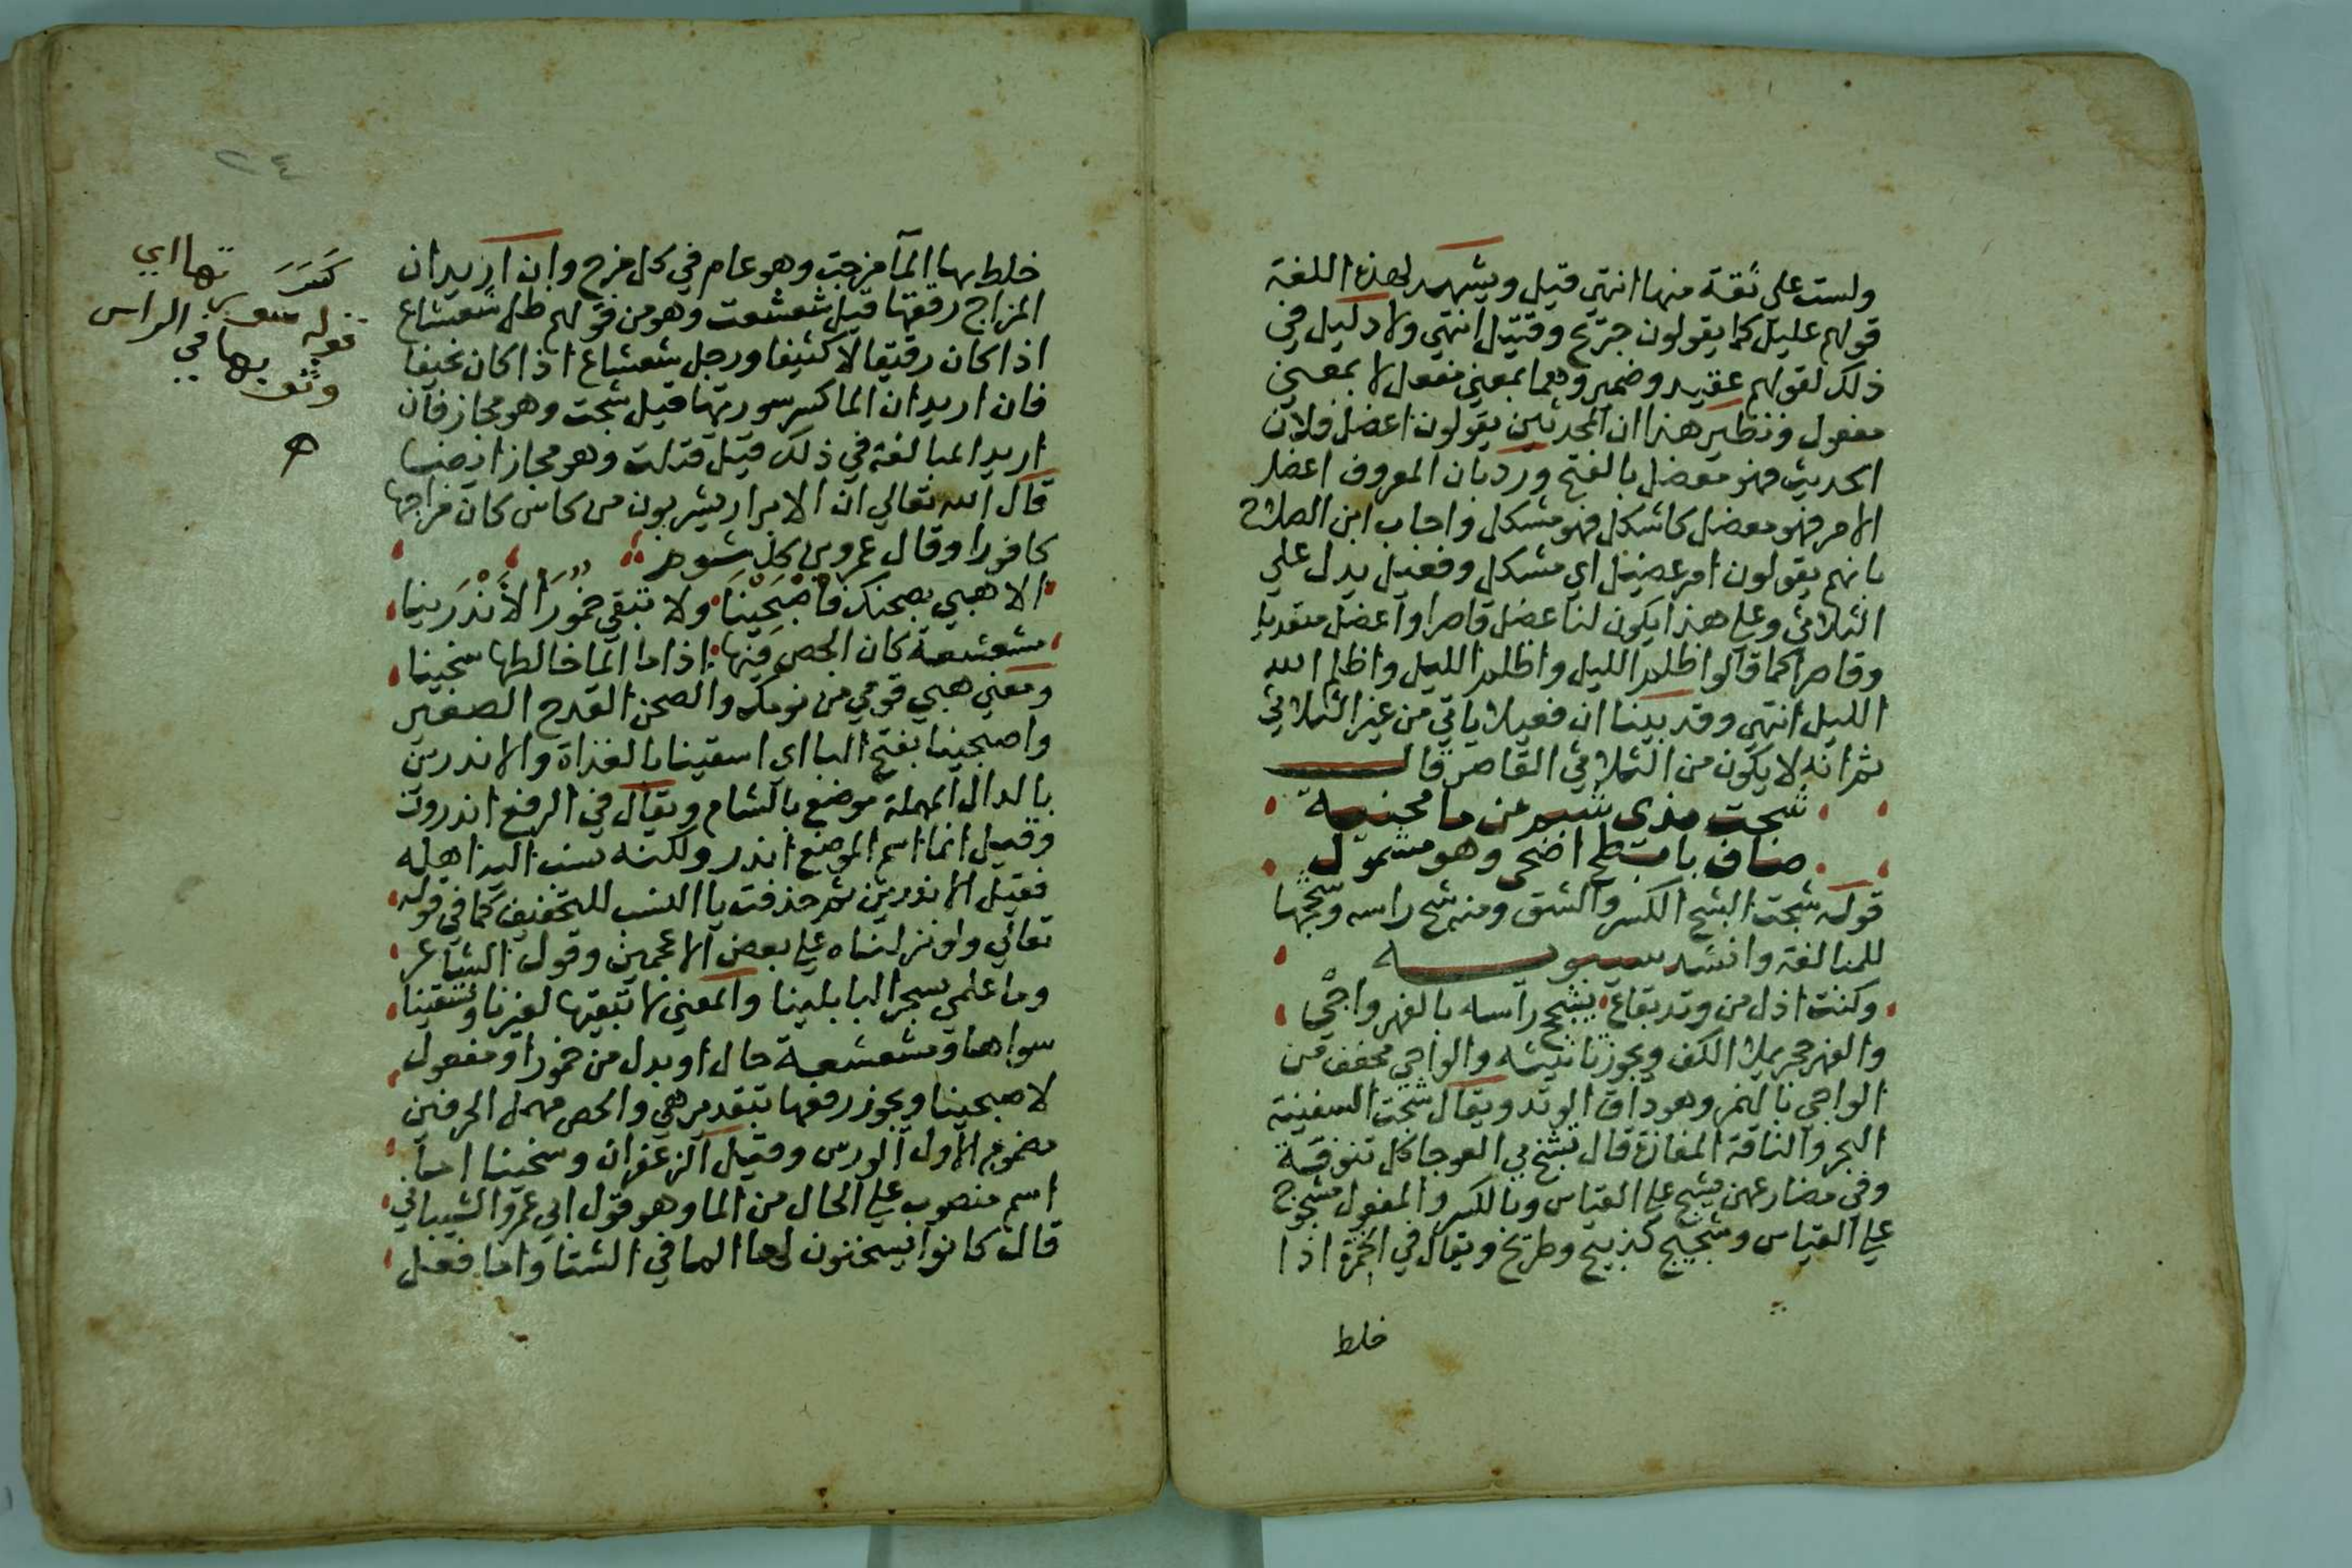 ولست على ثقة منها انتهى قيل ويشهد لهذه اللغة
قولهم عليل كما يقولون جريح وقتيل انتهى ولا دليل في
ذلك لقولهم عقيد وضمير وهما بمعنى مفعل لا بمعنى
مفعول ونظير هذا ان المحدثين يقولون اعضل فلان
الحديث فهو معضل بالفتح ورد بان المعروف اعضل
الامر فهو معضل كاشكل فهو مشكل واجاب ابن الصلاح
بانهم يقولون امر عضيل اي مشكل وفعيل يدل على
الثلاثي وعلى هذا يكون لنا عضل قاصرا واعضل متعديا
وقاصرا كما قالوا ظلم الليل واظلم الليل واظلم الله
الليل انتهى وقد بينا ان فعيلا ياتي من غير الثلاثي
ثم انه لا يكون من الثلاثي القاصر قال
شجت بذى شبم من ما محنية
صاف بابطح اضحى وهو مشمول
قوله شجت الشج الكسر والشق ومنه شج راسه وشججها
للمبالغة وانشد سيبويه
وكنت اذل من وتد بقاع يشجج راسه بالفهر واجي
والفهر حجر يملا الكف ويجوز تانيثه والواجي مخفف من
الواجي بالهمز وهو داق الوتد ويقال شجت السفينة
البحر والناقة المفازة قال تشج بي العوجا كل تنوفة
وفي مضارعهن يشج على القياس وبالكسر والمفعول مشجوج
على القياس وشجيج كذبيح وطريح ويقال في الخمرة اذا
خلط
٢٤
خلط بها الما مزجت وهو عام في كل مزج وان اريد ان
المزاج رققها قيل شعشعت وهو من قولهم ظل شعشاع
اذا كان رقيقا لا كثيفا ورجل شعشاع اذا كان نحيفا
فان اريد ان الما كسر سورتها قيل شجت وهو مجاز فان
اريد المبالغة في ذلك قيل قتلت وهو مجاز ايضا
قال الله تعالي ان الابرار يشربون من كاس كان مزاجها
كافورا وقال عمرو بن كلثوم
الا هبي بصحنك فاصْبَحينا ولا تبقي خمورَ الأَنْدَرينا
مشعشعة كان الحص فيها اذا ما الما خالطها سخينا
ومعنى هبي قومي من نومك والصحن القدح الصغير
واصبحينا بفتح البا اي اسقينا بالغداة والاندرين
بالدال المهملة موضع بالشام ويقال في الرفع اندرون
وقيل انما اسم الموضع اندر ولكنه نسب اليه اهله
فقيل الاندريين ثم حذفت يا النسب للتخفيف كما في قوله
تعالي ولو نزلناه على بعض الاعجمين وقول الشاعر
وما علمي بسحر البابلينا والمعنى لا تبقيها لغيرنا وتسقينا
سواها ومشعشعة حال او بدل من خمورا ومفعول
لاصبحينا ويجوز رفعها بتقدير هي والحص مهمل الحرفين
مضموم الاول الورس وقيل الزعفران وسخينا اما
اسم منصوب على الحال من الما وهو قول ابي عمرو الشيباني
قال كانوا يسخنون لها الما في الشتا واما فعل
كَسَرَ
قوله سورتها اي
وثوبها في الراس